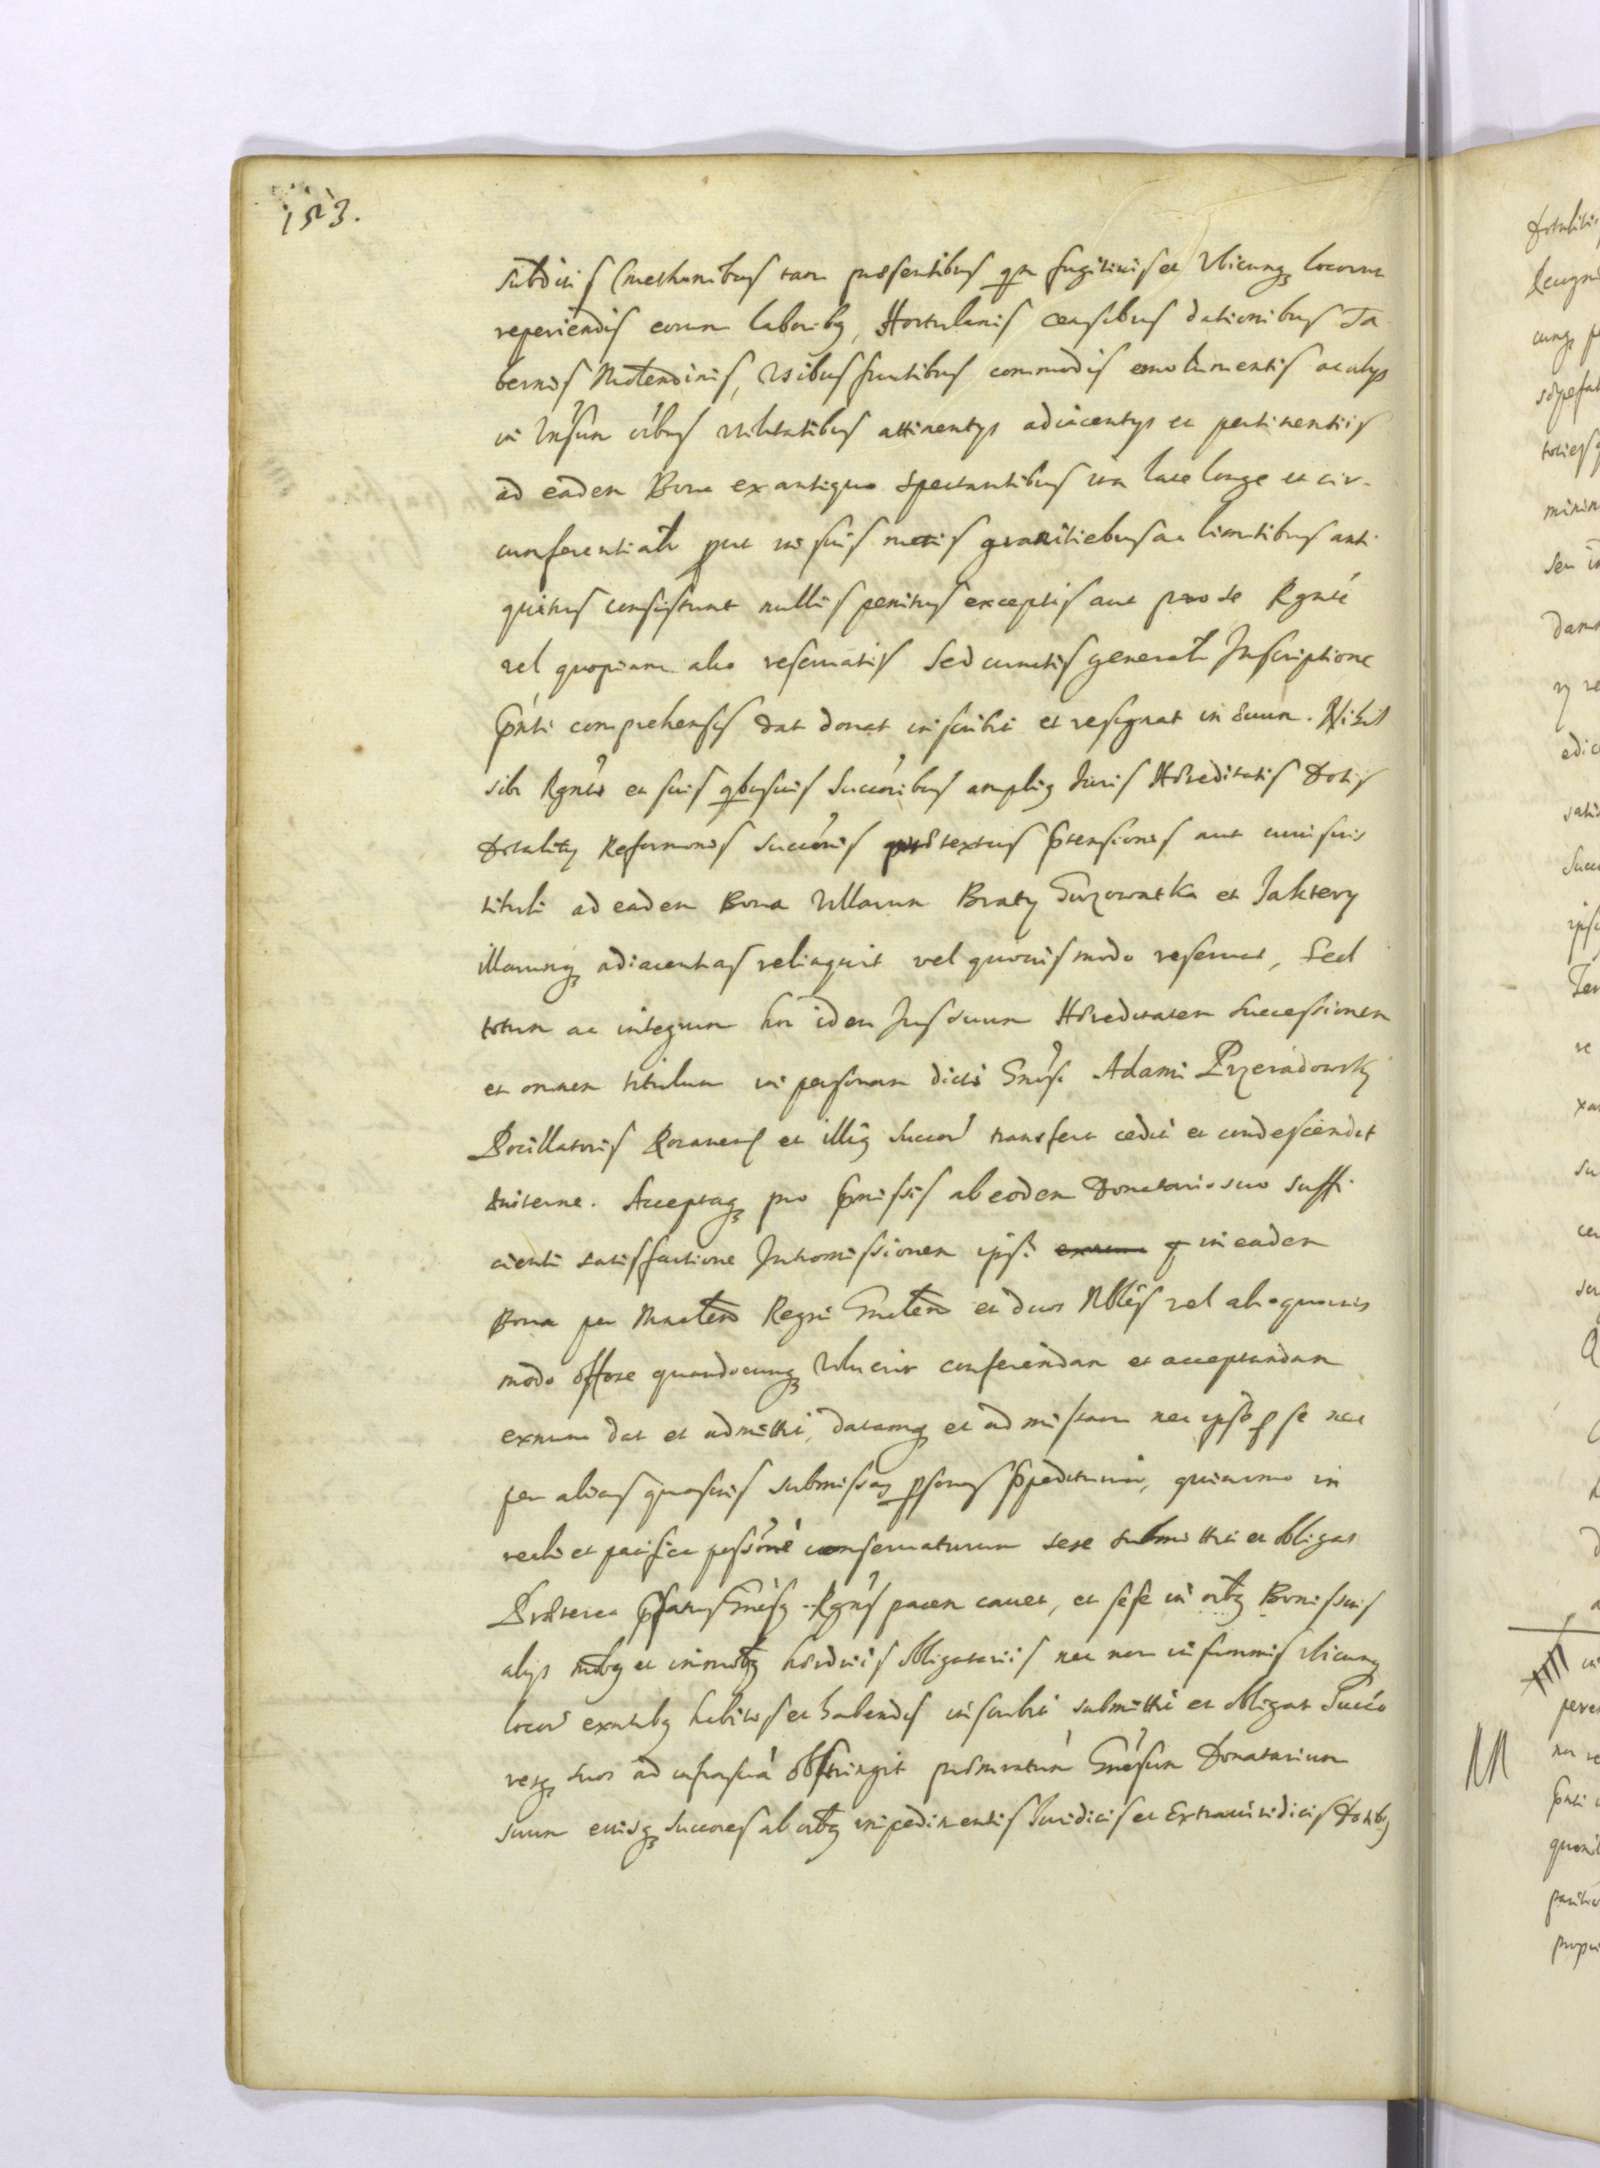 153.
Subditis Cmethonibus tam præsentibus qm fugitivis et Vbicunq locorum
reperiendis eorum laboribq, Hortulanis censibus dationibus Ta
bernis Molendinis, Vsibus fructibus commodis emolumentis ac alys
in Vnsum vibus Vtilitatibus attinentys adiacentys et pertinentiis
ad eadem Bona ex antiquo spectantibus ita late longe et cir-
cumferentialr prut in suis metis granitiebus ac limitibus anti
quitus consistunt nullis penitus exceptis aut pro se Rgnte
vel quopiam alio reservatis Sed cunctis generalr Inscriptione
pnti comprehensis dat donat inscribit et resignat in ævum. Nihil
sibi Rgnts et suis qbusuis Succoribus ampliq Juris Hæreditatis Dotis
Dotality Reformonis Succonis prætextus prtensionis aut cuiusuis
tituli ad eadem Bona Villarum Braty Guzowatka et Jaktery
illarumq adiacentias relinquit vel quouis modo reservat, Sed
totum ac integrum hoc idem Jus suum Hæreditatem Successionem
et omnem titulum in personam dicti Gnosi Adami Przeradowsky
Pocillatoris Rozanens et illiq Succor transfert cedit et condescendit
æuiterne. Acceptaq pro prmissis ab eodem Donatario suo suffi
cienti satisfactione Intromissionem ipsi in eadem
Bona per Mnrlem Regni Gnrlem et duos Nobles vel alio quouis
modo offore quandocunq Voluerit conferendam et acceptandam
exnunc dat et admittit, datamq et admissam nec ipse p se nec
per alias quasuis submissas psonas ppediturum, quinimo in
reali et pacifica possone conservaturum sese submittit et obligat
Præterea pfatus Gnosq Rgns pacem cauet, et sese in oibq Bonis suis
alys mobq et immobq hæredriis obligatoriis nec non in summis Vbicunq
locor exntibq habitis et habendis inscribit submittit et obligat Succo
resq suos ad infrascta obstringit præmentum Gnosum Donatarium
suum eiusq Succores ab oibq impedimentis Juridicis et Extrajuridicis Dotibq